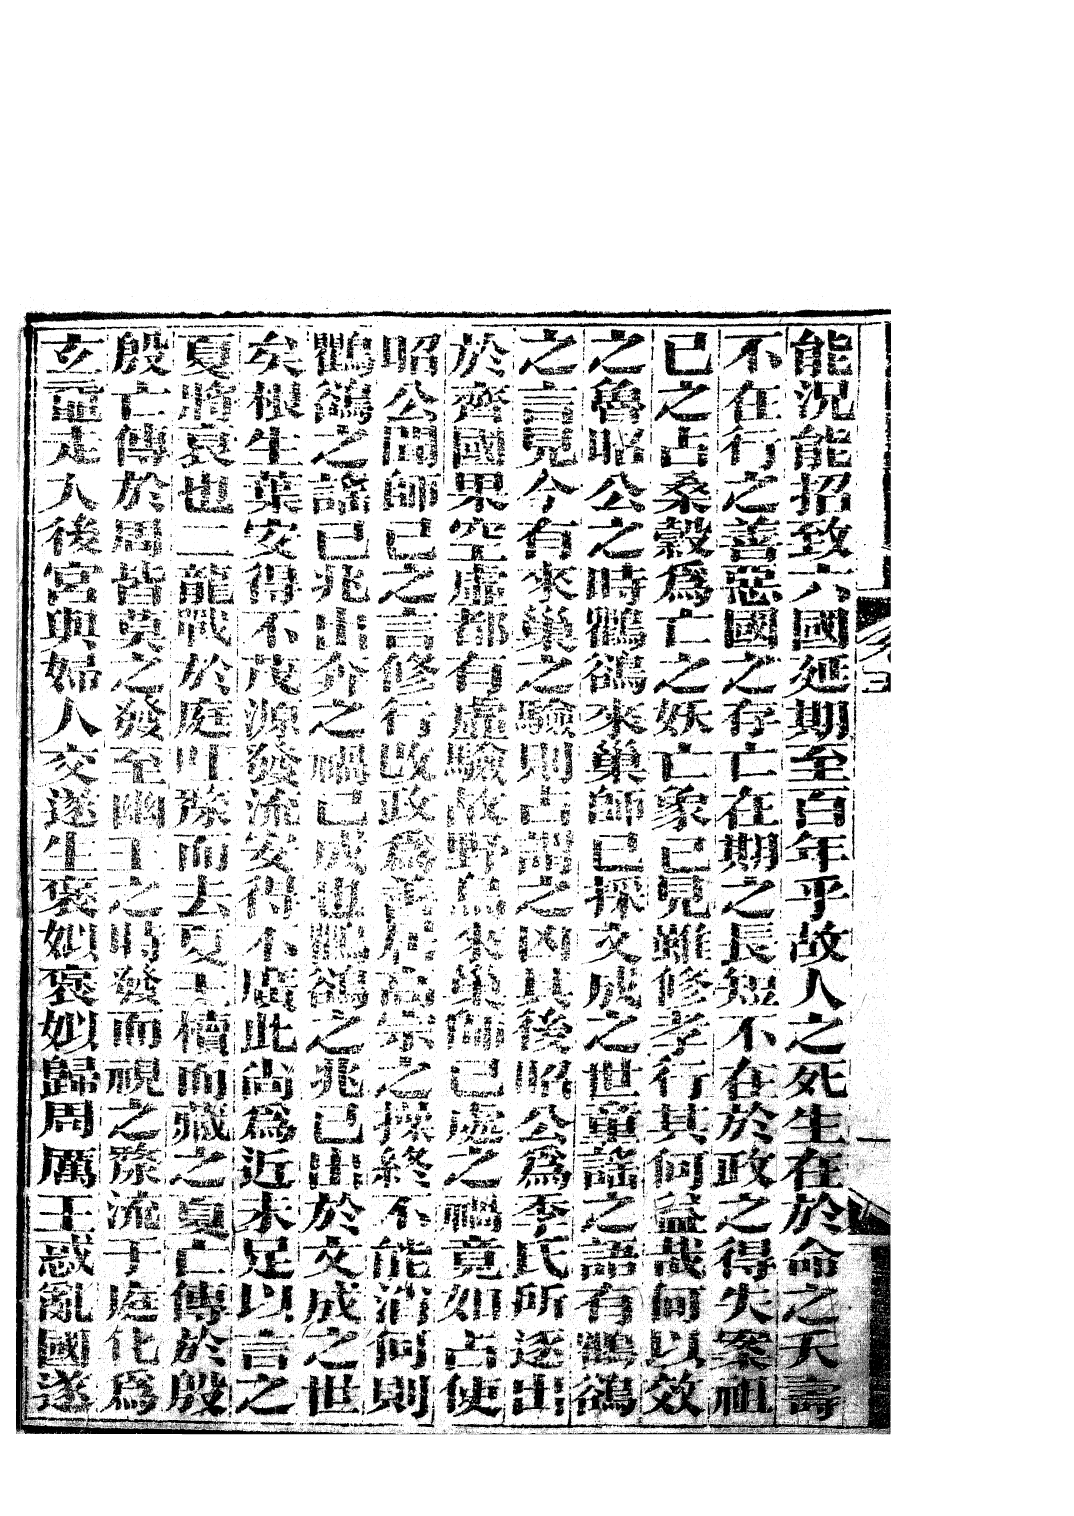 能況能招致六國延期至百年乎故人之死生在於命之夭壽
不在行之善惡國之存亡在期之長短不在於政之得失案祖
已之占桑榖為亡之妖亡象已見雖修孝行其何益哉何以效
之魯昭公之時鸜鵒來巢師已採文成之世童謠之語有鸜鵒
之言見今有來巢之驗則占謂之凶其後昭公為季氏所逐出
於齊國果空虛都有虛驗故野鳥來巢師已處之禍竟如占使
昭公聞師已之言修行改政為善居高宗之操終不能消何則
鸜鵒之謠已兆出奔之禍已成也鸜鵒之兆已出於文成之世
矣根生葉安得不茂源發流安得不廣此尚為近未足以言之
夏將衰也二龍戰於庭吐漦而去夏王櫝而藏之夏亡傳於殷
殷亡傳於周皆莫之發至幽王之時發而視之漦流于庭化為
玄黿走入後宮與婦人交遂生褒姒褒姒歸周厲王惑亂國遂
卷三